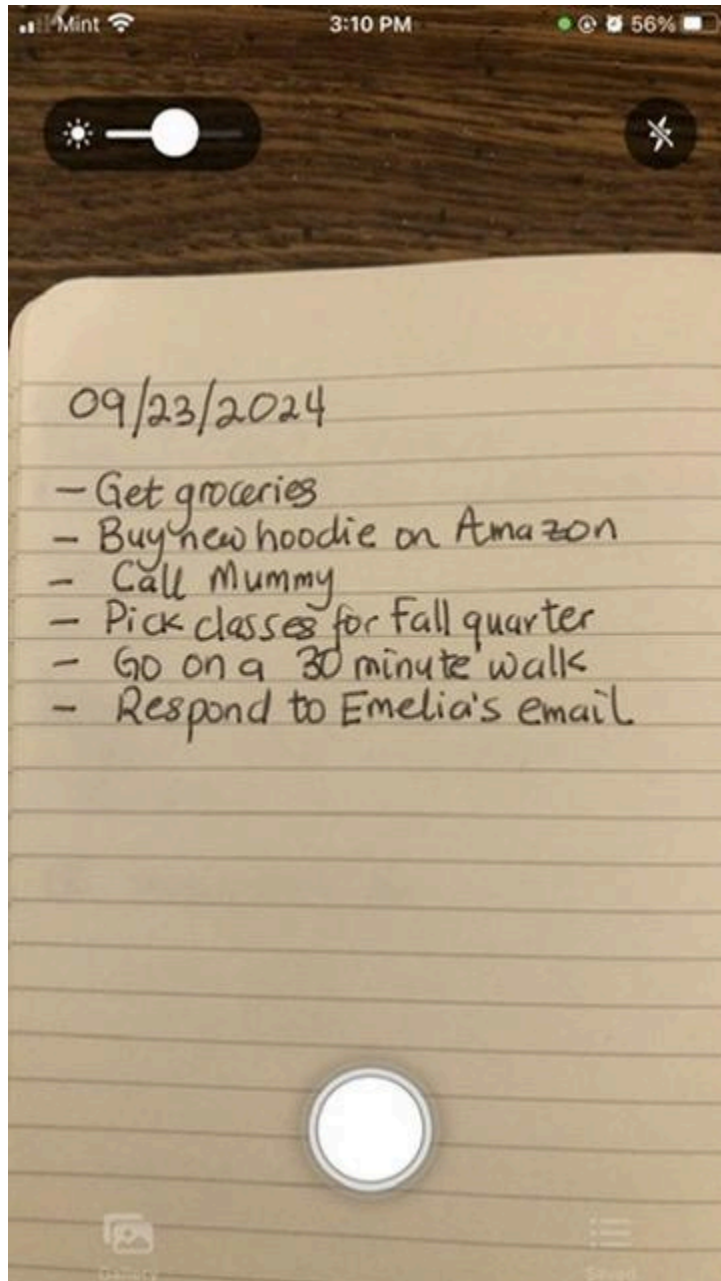 Mint
3:10 PM
56%
09/23/2024
- Get groceries
- Buy new hoodie on Amazon
- Call Mummy
- Pick classes for Fall quarter
- Go on a 30 minute walk
- Respond to Emelia's email
Gallery